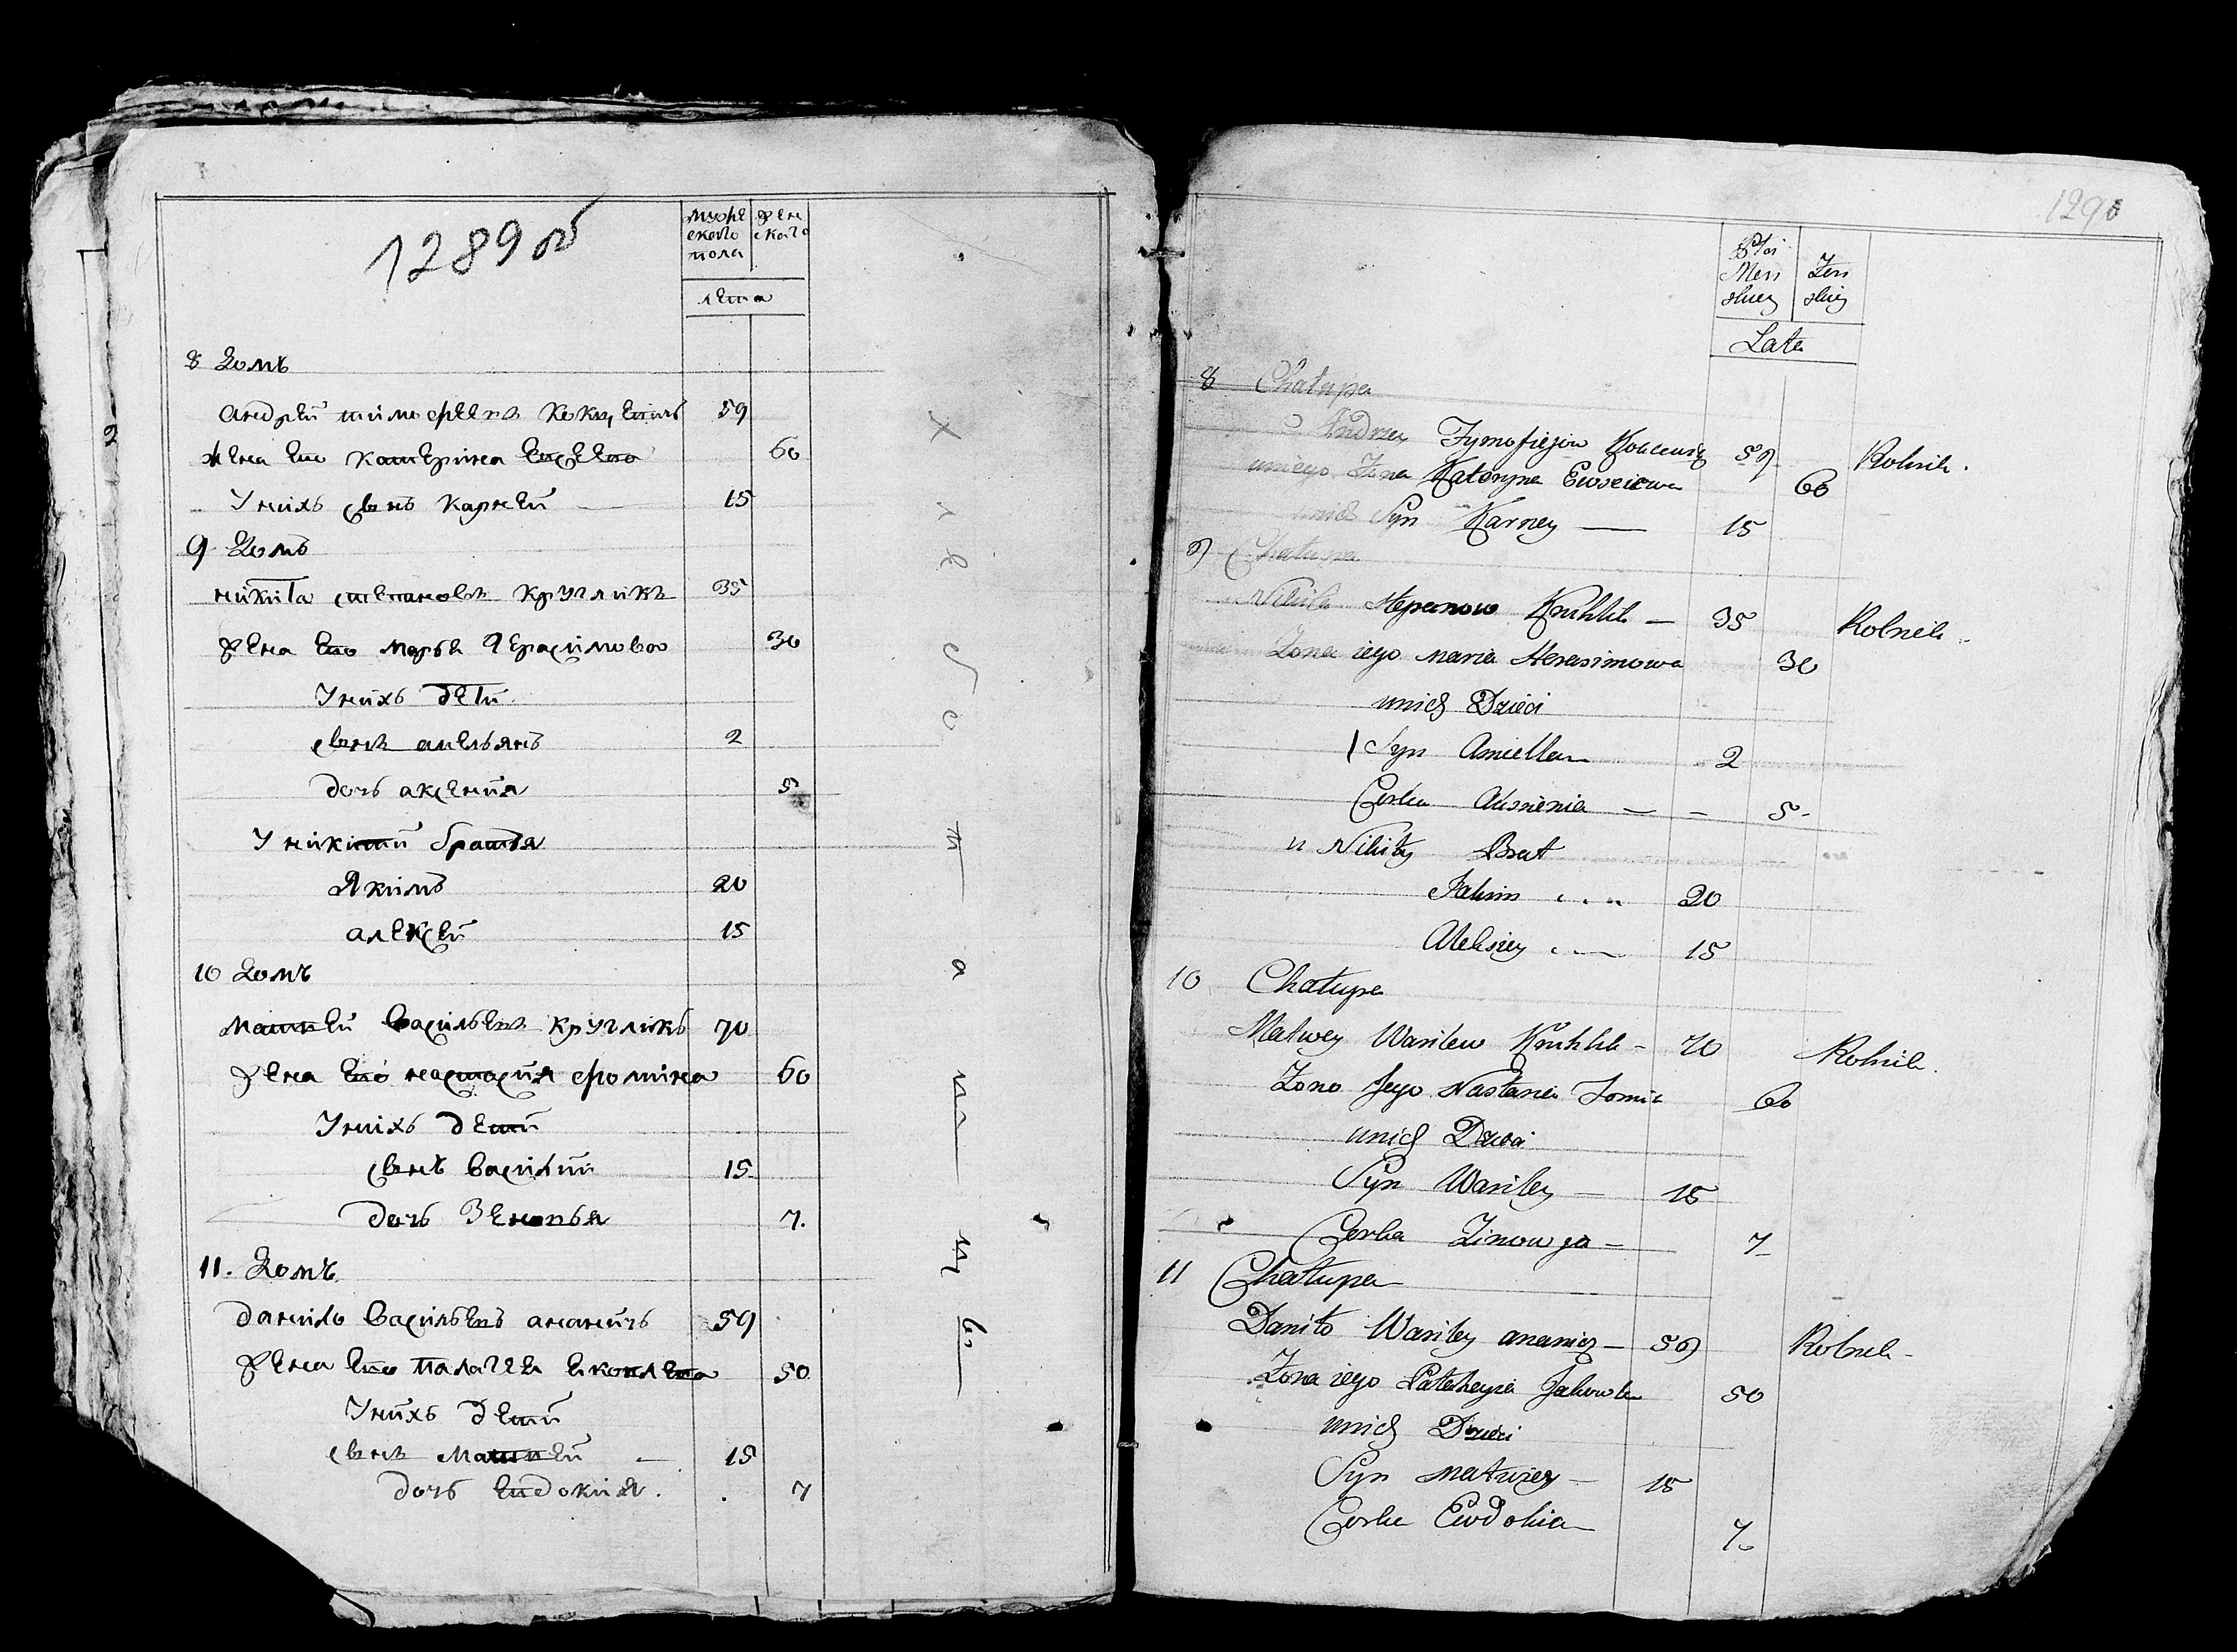 1289 об
мужескаго пола
женскаго
лета
8 домъ
андрей тимофеевъ кокцевичъ 59
жена ево катерина евсеева 60
у нихъ сынъ карней 15
9 домъ
никита степановъ кругликъ 35
жена ево марья герасимова 30
у нихъ дети
сынъ амельянъ 2
дочь аксения 5
у никити братья
якимъ 20
алексей 15
10 домъ
матвей васильевъ кругликъ 70
жена ево настасия фомина 60
у нихъ дети
сынъ василий 15
дочь зеновья 7.
11. домъ
данило васильевъ ананичъ 59
жена ево палагея яковлева 50
у нихъ дети
сынъ матвей 15
дочь евдокия. 7
хлебопашцы
1290
Płci Menskiey
Zenskiey
Lata
8 Chałupa
Andrzey Tymofiejow 59 Rolnik.
u niego Zona Kateryna Ewseiewa 60
u nich Syn Karney 15
9 Chałupa
Nikita Stepanow Kruhlik 35 Rolnik
Zona iego maria Herasimowa 30
u nich Dzieci
Syn Amiellan 2
Corka Aksienia 5
u Nikity Brat
Jakim 20
Aleksiey 15
10 Chałupa
Matwey Wasilew Kruhlik 70 Rolnik.
Zono Jego Nastasia Fomin 60
u nich Dzieci
Syn Wasiley 15
Corka Zinowja 7
11 Chałupa
Daniło Wasiley ananicz 59 Rolnik
Zona iego Palaheyia Jakowle 50
u nich Dzieci
Syn matwiey 15
Corka Ewdokia 7